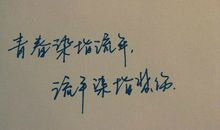 青春染指流年,
流年染指装饰.